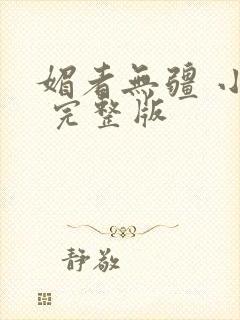 媚者無疆 小
完整版
静敬